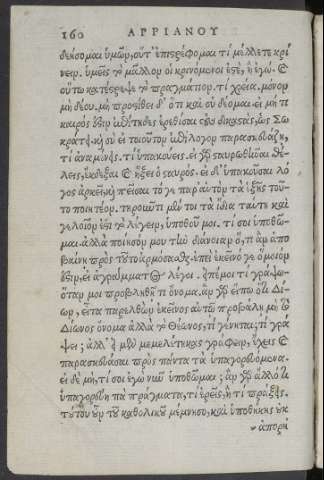 160 ΑΡΡΙΑΝΟΥ
δεήσομαι ὑμῶν, οὔτ' ἐπιστρέφομαι τί μέλλετε κρί
νειν. ὑμεῖς τὸ μᾶλλον οἱ κρινόμενοί ἐστε, ἢ ἐγώ. καὶ
οὕτω κατέστρεψε τὸ πραγμάτιον. τί χρεία. μόνον
μὴ δέου. μὴ προστίθει δ' ὅτι καὶ οὐ δέομαι. εἰ μή τι
καιρός ἐστιν ἐπίτηδες ἐρεθίσαι τοὺς δικαστάς, ὡς Σω
κράτει. καὶ σὺ εἰ τοιοῦτον ἐπίλογον παρασκευάζῃ,
τί ἀναμένεις. τί ὑπακούεις. εἰ γὰρ σταυρωθῆναι θέ
λεις, ἔκδεξαι καὶ ἥξει ὁ σταυρός. εἰ δ' ὑπακοῦσαι λό
γος ἀρκεῖ, καὶ πεῖσαι τό γε παρ' αὑτὸν τὰ ἑξῆς τού
τῳ ποιητέον. τηροῦντι μέν τοι τὰ ἴδια ταύτῃ καὶ
γελοῖόν ἐστι τὸ λέγειν, ὑπόθου μοι. τί σοι ὑποθῶ
μαι. ἀλλὰ ποίησόν μου τὴν διάνοιαν ὅ, τι ἂν ἀπο
βαίνῃ πρὸς τοῦτο ἁρμόσασθαι. ἐπεὶ ἐκεῖνό γε ὅμοιόν
ἐστιν, εἰ ἀγράμματος λέγοι. εἰπέ μοι τί γράψω
ὅταν μοι προβληθῇ τι ὄνομα. ἂν γὰρ εἴπω ὅτι Δί
ων, εἶτα παρελθὼν ἐκεῖνος αὐτῷ προβάλῃ μὴ τὸ
Δίωνος ὄνομα ἀλλὰ τὸ Θέωνος, τί γένηται; τί γρά
ψει; ἀλλ' εἰ μὲν μεμελέτηκας γράφειν, ἔχεις καὶ
παρασκευάσαι πρὸς πάντα τὰ ὑπαγορευόμενα.
εἰ δὲ μή, τί σοι ἐγὼ νῦν ὑποθῶμαι; ἂν γὰρ ἄλλό τι
ὑπαγορεύῃ τὰ πράγματα, τί ἐρεῖς, ἢ τί πράξεις.
τούτου οὖν τοῦ καθολικοῦ μέμνησο, καὶ ὑποθήκης οὐκ
ἀπορή